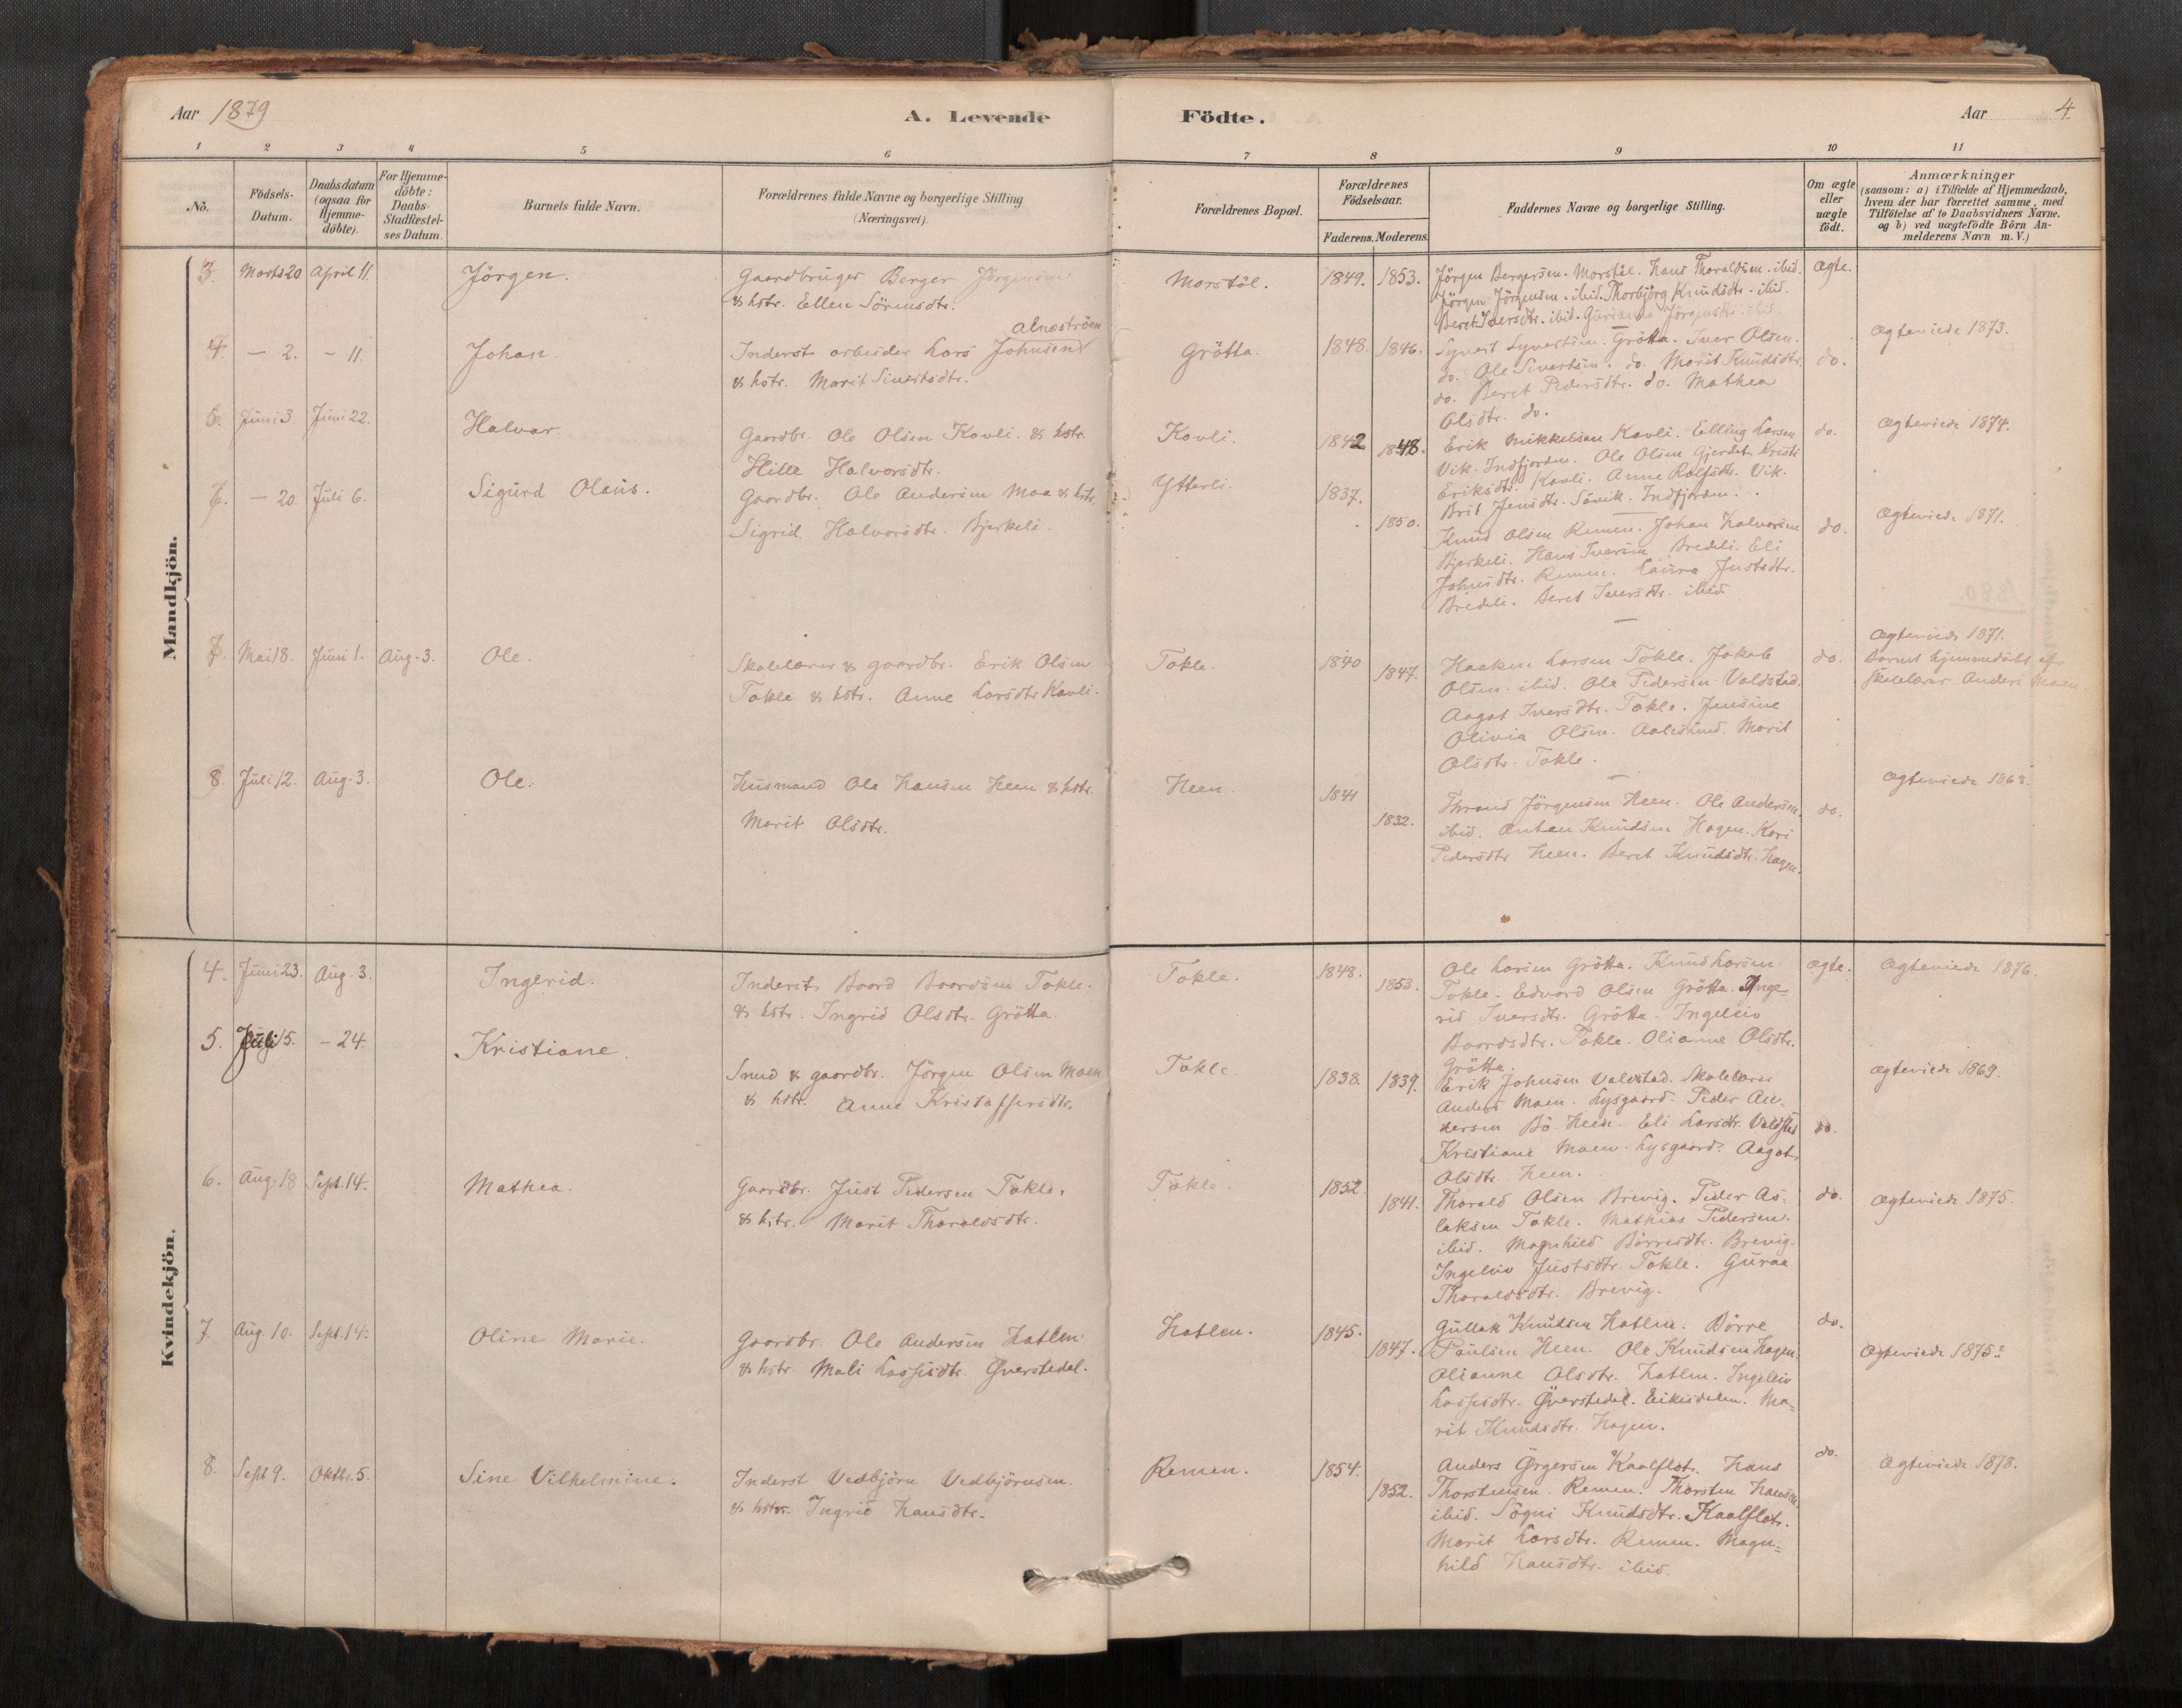 Aar 1879
A. Levende
Födte.
Aar
4.
1 2 3 4 5 6 7 8 9 10 11
No.
Födsels-Datum.
Daabsdatum (ogsaa for Hjemme-döbte).
For Hjemme-döbte: Daabs-Stadfæstel-ses Datum.
Barnets fulde Navn.
Forældrenes fulde Navne og borgerlige Stilling
(Næringsvei).
Forældrenes Bopæl.
Forældrenes Födselsaar.
Faderens. Moderens.
Faddernes Navne og borgerlige Stilling.
Om ægte eller uægte födt.
Anmærkninger
(saasom: a) i Tilfælde af Hjemmedaab,
hvem der har forrettet samme, med
Tilföielse af to Daabsvidners Navne.
og b) ved uægtefödte Börn An-
melderens Navn m. V.)
Mandkjön.
3. Marts 20 April 11. Jörgen.
Gaardbruger Berger Jörgensen
& hstr. Ellen Sörensdtr.
Morstöl. 1849. 1853.
Jörgen Bergersen. Morstöl. Hans Thoraldsen. ibid.
Jörgen Jörgensen. ibid. Thorbjörg Knudsdtr. ibid.
Beret Iversdtr. ibid. Gurianna Jörgensdtr. ibid.
Ægte.
Ægteviede 1873.
4. – 2. – 11. Johan.
Almaström
Inderst arbeider Lars Johnsen
& hstr. Marit Sivertsdtr.
Grötta. 1848. 1846.
Syvert Syvertsen. Grötta. Iver Olsen.
do. Ole Sivertsen. do. Marit Knudsdtr.
do. Beret Pedersdtr. do. Mathea
Olsdtr. do.
do.
Ægteviede 1874.
6. Juni 3. Juni 22. Halvar.
Gaardbr. Ole Olsen Kavli. & hstr.
Hille Halvorsdtr.
Kavli. 1842. 1848.
Erik Mikkelsen Kavli. Elling Larsen
Vik. Indfjorden. Ole Olsen Gjerdet. Kristi
Eriksdtr. Kavli. Anne Rolfsdtr. Vik.
Brit Jensdtr. Sövik. Indfjorden.
do.
Ægteviede 1871.
6. – 20. Juli 6. Sigurd Olaus.
Gaardbr. Ole Andersen Moa & hstr.
Sigrid Halvorsdtr. Bjerkeli.
Ytterli. 1837. 1850.
Knud Olsen Remen. Johan Halvorsen
Bjerkeli. Hans Iversen Bredeli. Eli
Johnsdtr. Remen. Laura Justsdtr.
Bredeli. Beret Iversdtr. ibid.
do.
7. Mai 18. Juni 1. Aug. 3. Ole.
Skolelærer & gaardbr. Erik Olsen
Tokle & hstr. Anne Larsdtr. Kavli.
Tokle. 1840 1847.
Haaken Larsen Tokle. Jakob
Olsen. ibid. Ole Pedersen Voldstad.
Aagot Iversdtr. Tokle. Jensine
Olivia Olsen. Aalesund. Marit
Olsdtr. Tokle.
do.
Ægteviede 1871.
Barnet hjemmedöbt af
Skolelærer Anders Moen.
8. Juli 12. Aug. 3. Ole.
Husmand Ole Hansen Heen & hstr.
Marit Olsdtr.
Heen. 1841 1832.
Thrond Jörgensen Heen. Ole Andersen.
ibid. Anton Knudsen Hagen. Kari
Pedersdtr Heen. Beret Knudsdtr. Hagen.
do.
Ægteviede 1868.
Kvindekjön.
4. Juni 23. Aug. 3. Ingerid.
Inderst Baard Baardsen Tokle.
& hstr. Ingrid Olsdtr. Grötta.
Tokle. 1848. 1853.
Ole Larsen Grötta. Knud Larsen
Tokle. Edvard Olsen Grötta. Inge-
rid Iversdtr. Grötta. Ingeleiv
Baardsdtr. Tokle. Olianne Olsdtr.
Grötta.
Ægte.
Ægteviede 1876.
5. Juli 15. – 24. Kristiane.
Smed & gaardbr. Jörgen Olsen Moen
& hstr. Anne Kristoffersdtr.
Tokle. 1838. 1839.
Erik Johnsen Voldstad. Skolelærer
Anders Moen. Lysgaard. Peder An-
dersen Bö. Heen. Eli Larsdtr. Voldstad
Kristiane Moen. Lysgaard. Aagot
Olsdtr. Heen.
do.
Ægteviede 1869.
6. Aug. 18 Sept. 14. Mathea.
Gaardbr. Just Pedersen Tokle.
& hstr. Marit Thoraldsdtr.
Tokle. 1852. 1841.
Thorald Olsen Brevig. Peder As-
laksen Tokle. Mathias Pedersen.
ibid. Magnhild Börresdtr. Brevig.
Ingeleiv Justsdtr. Tokle. Guraa
Thoraldsdtr. Brevig.
do.
Ægteviede 1875.
7. Aug. 10. Sept. 14. Oline Marie.
Gaardbr. Ole Andersen Hatlen
& hstr. Mali Lassisdtr. Överstedal.
Hatlen. 1845. 1847.
Gullak Knudsen Hatlen. Börre
Paulsen Heen. Ole Knudsen Hagen.
Olianne Olsdtr. Hatlen. Ingeleiv
Lassisdtr. Överstedal. Eikisdalen. Ma-
rit Knudsdtr. Hagen.
do.
Ægteviede 1875.
8. Sept 9. Oktbr. 5. Sine Vilhelmine.
Inderst Vedbjörn Vedbjörnsen
& hstr. Ingrid Hansdtr.
Remen. 1854. 1852.
Anders Örgersen Kaalflot. Hans
Thorstensen. Remen. Thorsten Hansen.
ibid. Sögni Knudsdtr. Kaalflot.
Marit Larsdtr. Remen. Magn-
hild Hansdtr. ibid.
do.
Ægteviede 1878.